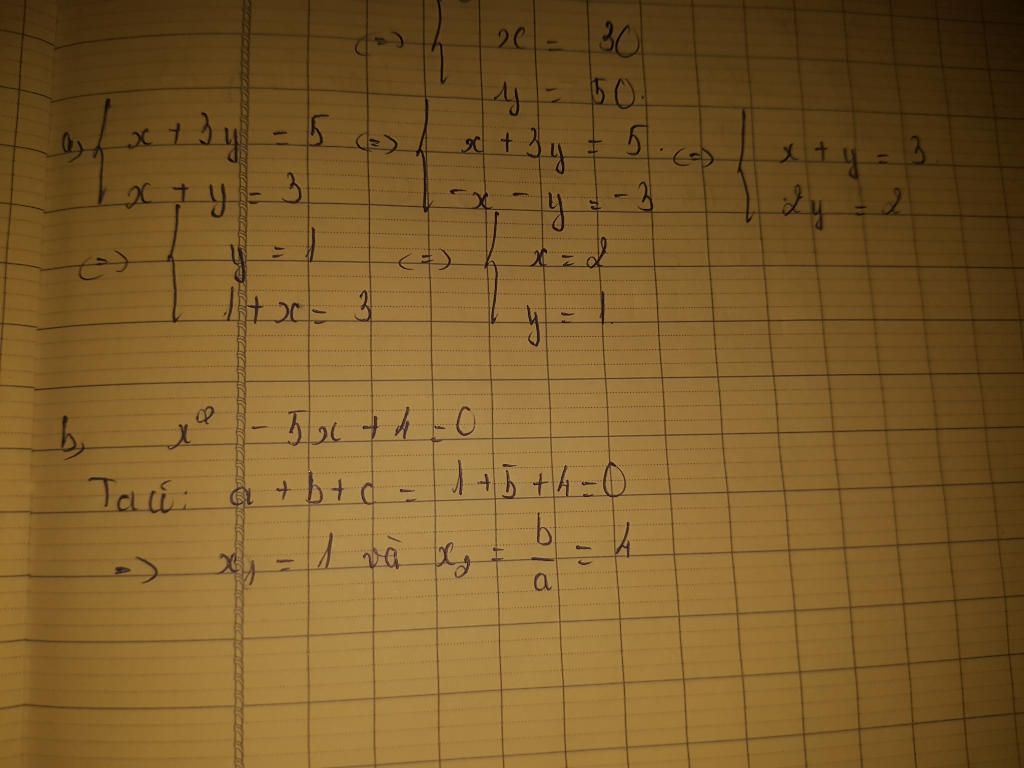 (=) { x = 30
y = 50.
a, { x + 3y = 5 (=) { x + 3y = 5. (=) { x + y = 3
x + y = 3 -x - y = -3 2y = 2
(=) { y = 1 (=) { x = 2
1 + x = 3 y = 1
b, x² - 5x + 4 = 0
Ta có: a + b + c = 1 + 5 + 4 = 0
=> x₁ = 1 và x₂ = b/a = 4